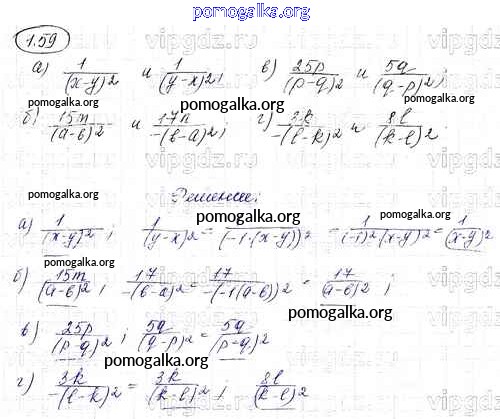 pomogalka.org
1.59
а) 1/(x-y)² и 1/(y-x)², в) 25p/(p-q)² и 5q/(q-p)²;
pomogalka.org pomogalka.org
б) 15m/(a-b)² и 17n/-(b-a)²; г) 3k/-(l-k)² и 8l/(k-l)².
pomogalka.org
pomogalka.org Решение: pomogalka.org
а) 1/(x-y)²; 1/(y-x)² = 1/(-1·(x-y))² = 1/(-1)²·(x-y)² = 1/(x-y)²
pomogalka.org
б) 15m/(a-b)²; 17/-(b-a)² = 17/-(-1(a-b))² = 17/(a-b)²;
pomogalka.org pomogalka.org
в) 25p/(p-q)²; 5q/(q-p)² = 5q/(p-q)²
pomogalka.org
г) 3k/-(l-k)² = 3k/(k-l)²; 8l/(k-l)²
pomogalka.org